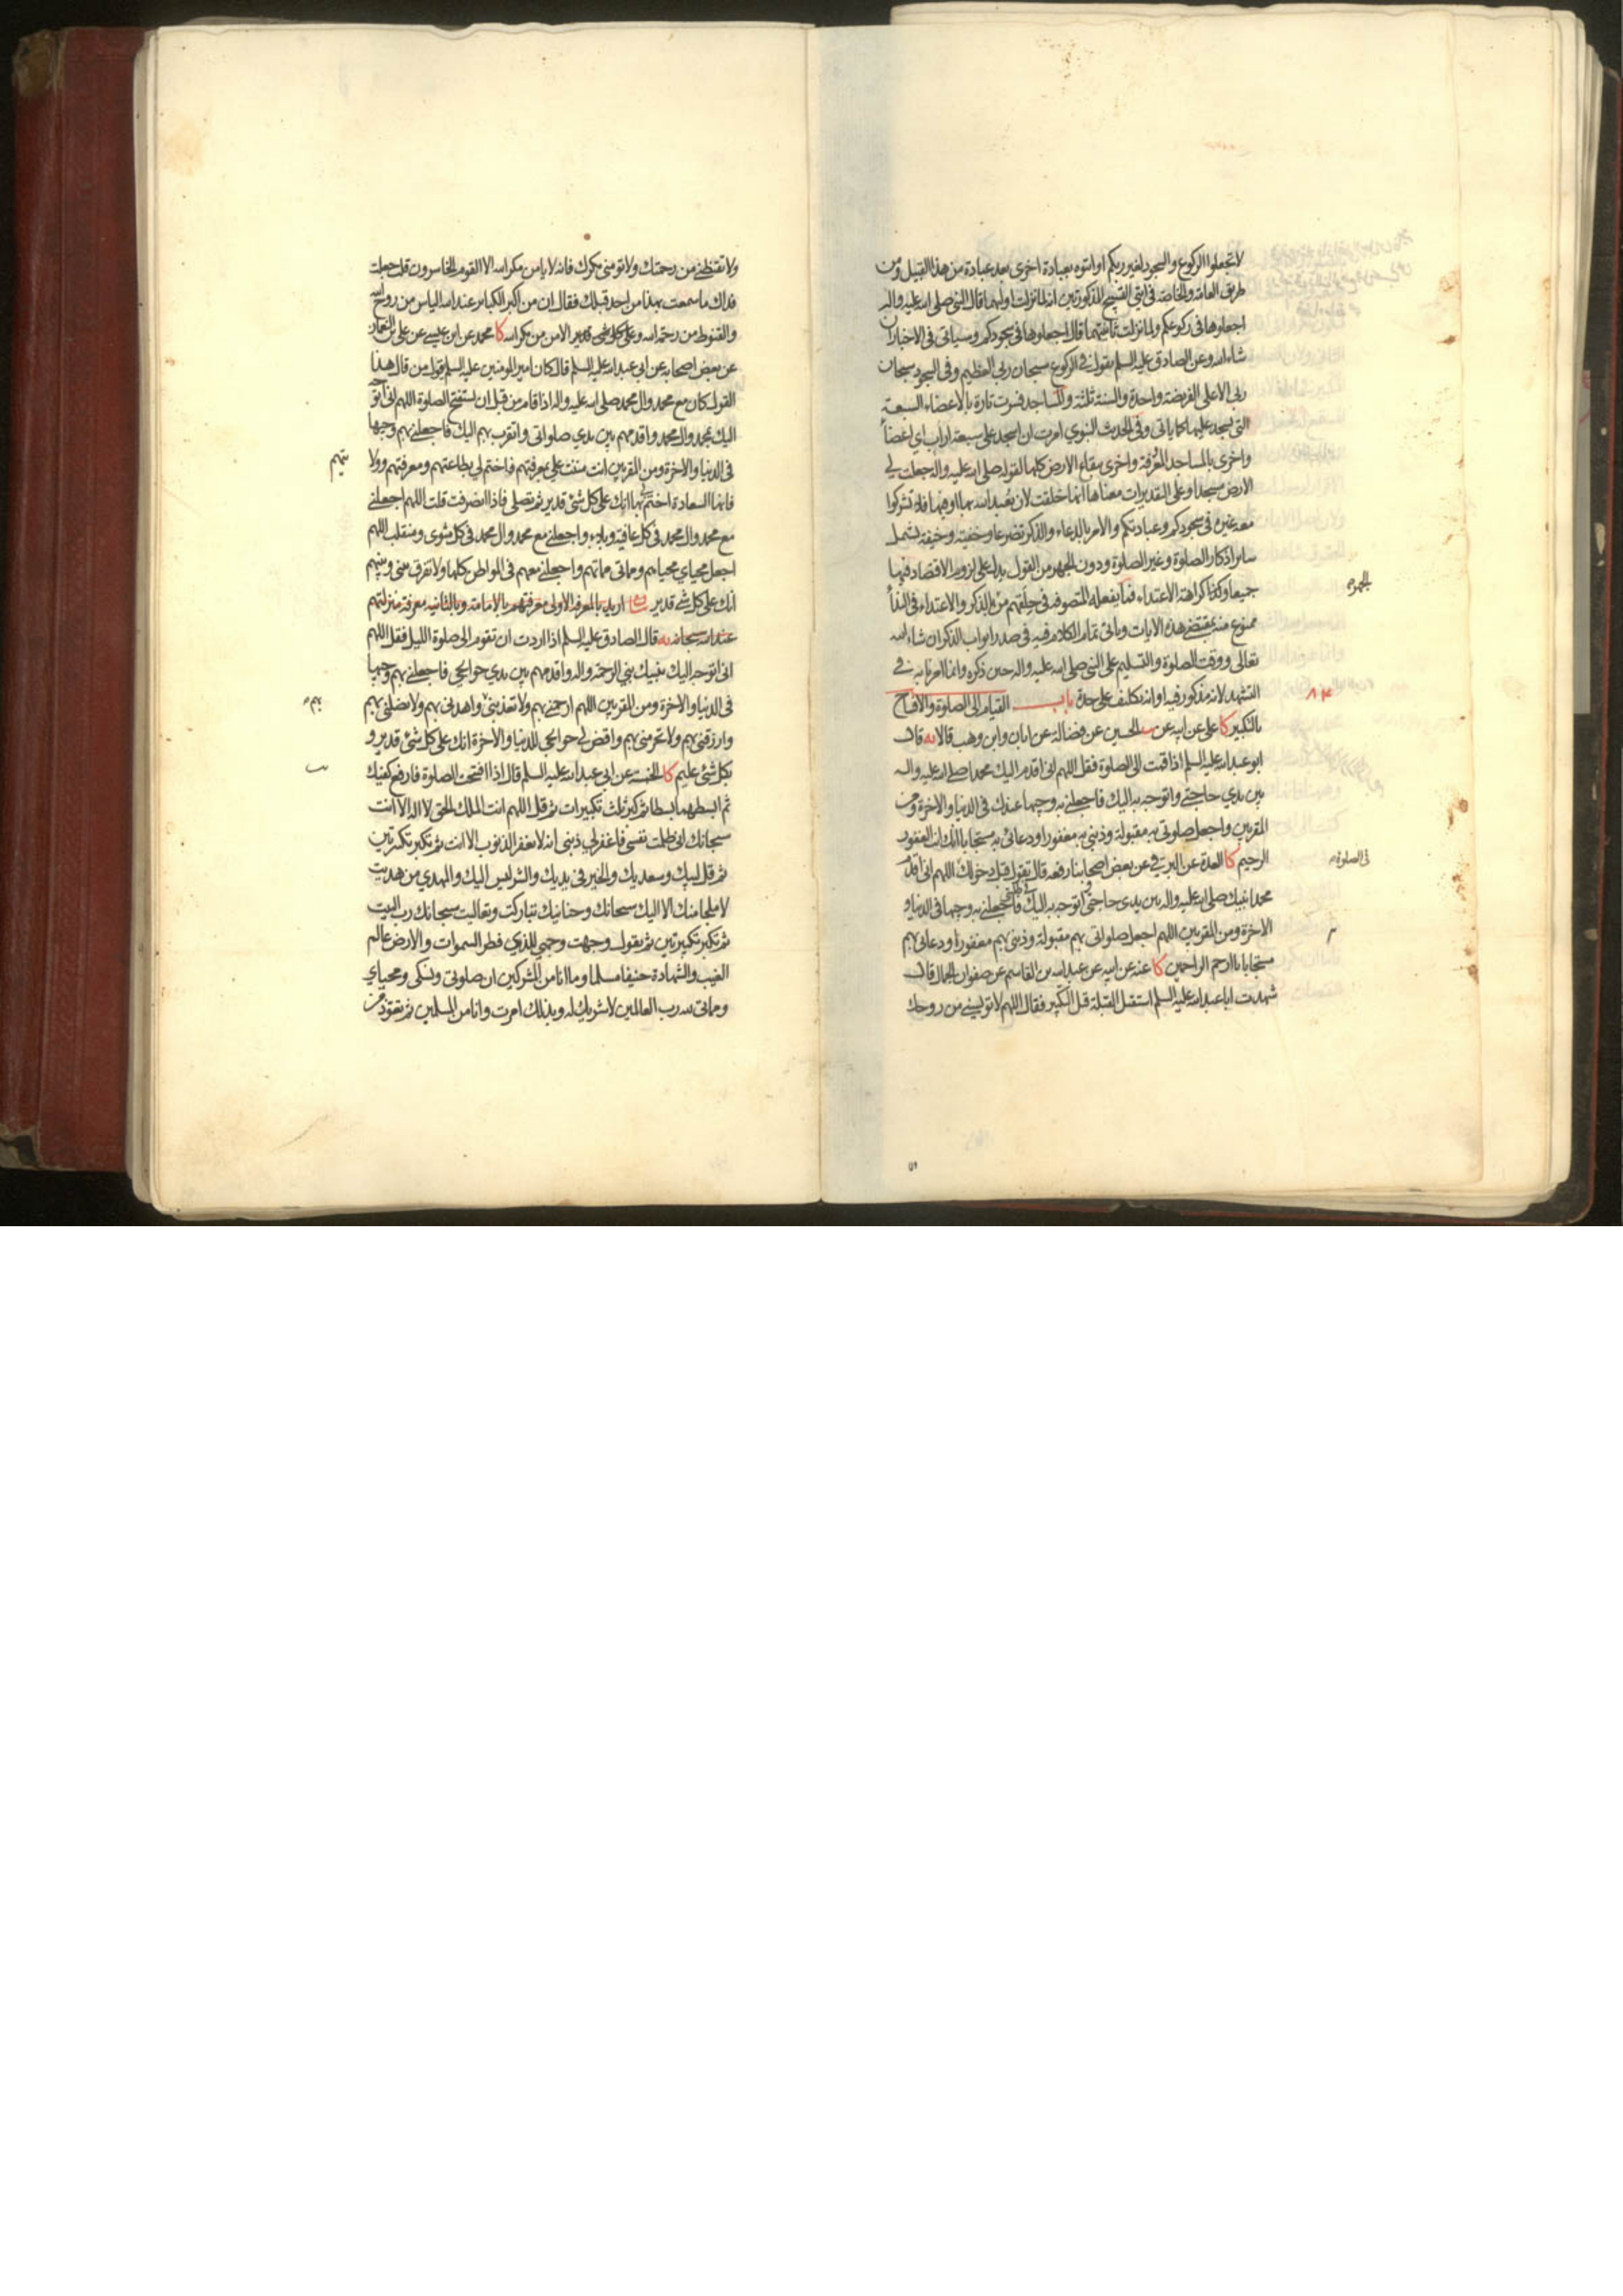 لا تجعلوا الركوع والسجود لغير ربكم او ائتوه بعبادة اخرى بعد عبادة من هذا القبيل ومن
طريق العامة والخاصة في ايتي التسبيح المذكورتين انه لما نزلت اوليهما قال النبي صلى الله عليه واله
اجعلوها في ركوعكم ولما نزلت ثانيتهما قال اجعلوها في سجودكم وسياتي في الاخبار ان
شاء الله وعن الصادق عليه السلم تقول في الركوع سبحان ربي العظيم وفي السجود سبحان
ربي الاعلى الفريضة واحدة والسنة ثلثة والمساجد فسرت تارة بالاعضاء السبعة
التي يسجد عليها كما ياتي وفي الحديث النبوي امرت ان اسجد على سبعة اراب اي اعضاء
واخرى بالمساجد المعروفة واخرى ببقاع الارض كلها لقوله صلى الله عليه واله جعلت لي
الارض مسجدا وعلى التقديرات معناها انها خلقت لان يعبد الله بها او فيها فلا تشركوا
معه غيره في سجودكم وعبادتكم والامر بالدعاء والذكر تضرعا وخفية وخيفة يشمل
ساير اذكار الصلوة وغير الصلوة ودون الجهر من القول يدل على لزوم الاقتصاد فيها
جميعا وكذا كراهة الاعتداء فما يفعله المتصوفة في حلقهم من الذكر والاعتداء في النداء
ممنوع منه بمقتضى هذه الايات وياتي تمام الكلام فيه في صدر ابواب الذكر ان شاء الله
تعالى ووقت الصلوة والتسليم على النبي صلى الله عليه واله حين ذكره وانما امرنا به في
التشهد لانه مذكور فيه او انه تكليف على حدة باب القيام الى الصلوة والافتتاح
بالتكبير كا علي عن ابيه عن الحسين عن فضالة عن ابان وابن وهب قالا يه قال
ابو عبد الله عليه السلم اذا قمت الى الصلوة فقل اللهم اني اقدم اليك محمدا صلى الله عليه واله
بين يدي حاجتي واتوجه به اليك فاجعلني به وجيها عندك في الدنيا والاخرة ومن
المقربين واجعل صلوتي به مقبولة وذنبي به مغفورا ودعائي به مستجابا انك انت الغفور
الرحيم كا العدة عن البرقي عن بعض اصحابنا رفعه قال تقول قبل دخولك اللهم اني اقدم
محمدا نبيك صلى الله عليه واله بين يدي حاجتي واتوجه به اليك في طلبتي فاجعلني به وجيها في الدنيا و
الاخرة ومن المقربين اللهم اجعل صلواتي بهم مقبولة وذنبي بهم مغفورا ودعائي بهم
مستجابا يا ارحم الراحمين كا عنه عن ابيه عن عبد الله بن القاسم عن صفوان الجمال قال
شهدت ابا عبد الله عليه السلم استقبل القبلة قبل التكبير فقال اللهم لا تويسني من روحك
الجهر ه
٨٤
في الصلوة
ولا تقنطني من رحمتك ولا تومني مكرك فانه لا يامن مكر الله الا القوم الخاسرون قلت جعلت
فداك ما سمعت بهذا من احد قبلك فقال ان من اكبر الكبائر عند الله الياس من روح الله
والقنوط من رحمة الله والامن من مكر الله كا محمد عن ابن عيسى عن علي بن النعمان
عن بعض اصحابه عن ابي عبد الله عليه السلم قال كان امير المومنين عليه السلم يقول من قال هذا
القول كان مع محمد وال محمد صلى الله عليه واله اذا قام من قبل ان يستفتح الصلوة اللهم اني اتوجه
اليك بمحمد وال محمد واقدمهم بين يدي صلواتي واتقرب بهم اليك فاجعلني بهم وجيها
في الدنيا والاخرة ومن المقربين انت مننت علي بمعرفتهم فاختم لي بطاعتهم ومعرفتهم وولا
فانها السعادة اختم لي بها انك على كل شئ قدير ثم تصلي فاذا انصرفت قلت اللهم اجعلني
مع محمد وال محمد في كل عافية وبلاء واجعلني مع محمد وال محمد في كل مثوى ومنقلب اللهم
اجعل محياي محياهم ومماتي مماتهم واجعلني معهم في المواطن كلها ولا تفرق بيني وبينهم
انك على كل شئ قدير بيان اريد بالمعرفة الاولى معرفتهم بالامامة وبالثانية معرفة منزلتهم
عند الله سبحانه يه قال الصادق عليه السلم اذا اردت ان تقوم الى صلوة الليل فقل اللهم
اني اتوجه اليك بنبيك نبي الرحمة واله واقدمهم بين يدي حوائجي فاجعلني بهم وجيها
في الدنيا والاخرة ومن المقربين اللهم ارحمني بهم ولا تعذبني واهدني بهم ولا تضلني بهم
وارزقني بهم ولا تحرمني بهم واقض لي حوائجي للدنيا والاخرة انك على كل شئ قدير و
بكل شئ عليم كا الخمسة عن ابي عبد الله عليه السلم قال اذا افتتحت الصلوة فارفع كفيك
ثم ابسطهما بسطا ثم كبر ثلث تكبيرات ثم قل اللهم انت الملك الحق لا اله الا انت
سبحانك اني ظلمت نفسي فاغفر لي ذنبي انه لا يغفر الذنوب الا انت ثم تكبر تكبرتين
ثم قل لبيك وسعديك والخير في يديك والشر ليس اليك والمهدي من هديت
لا ملجا منك الا اليك سبحانك وحنانيك تباركت وتعاليت سبحانك رب البيت
ثم تكبر تكبيرتين ثم تقول وجهت وجهي للذي فطر السموات والارض عالم
الغيب والشهادة حنيفا مسلما وما انا من المشركين ان صلوتي ونسكي ومحياي
ومماتي لله رب العالمين لا شريك له وبذلك امرت وانا من المسلمين ثم تعوذ من
يتهم
بهم